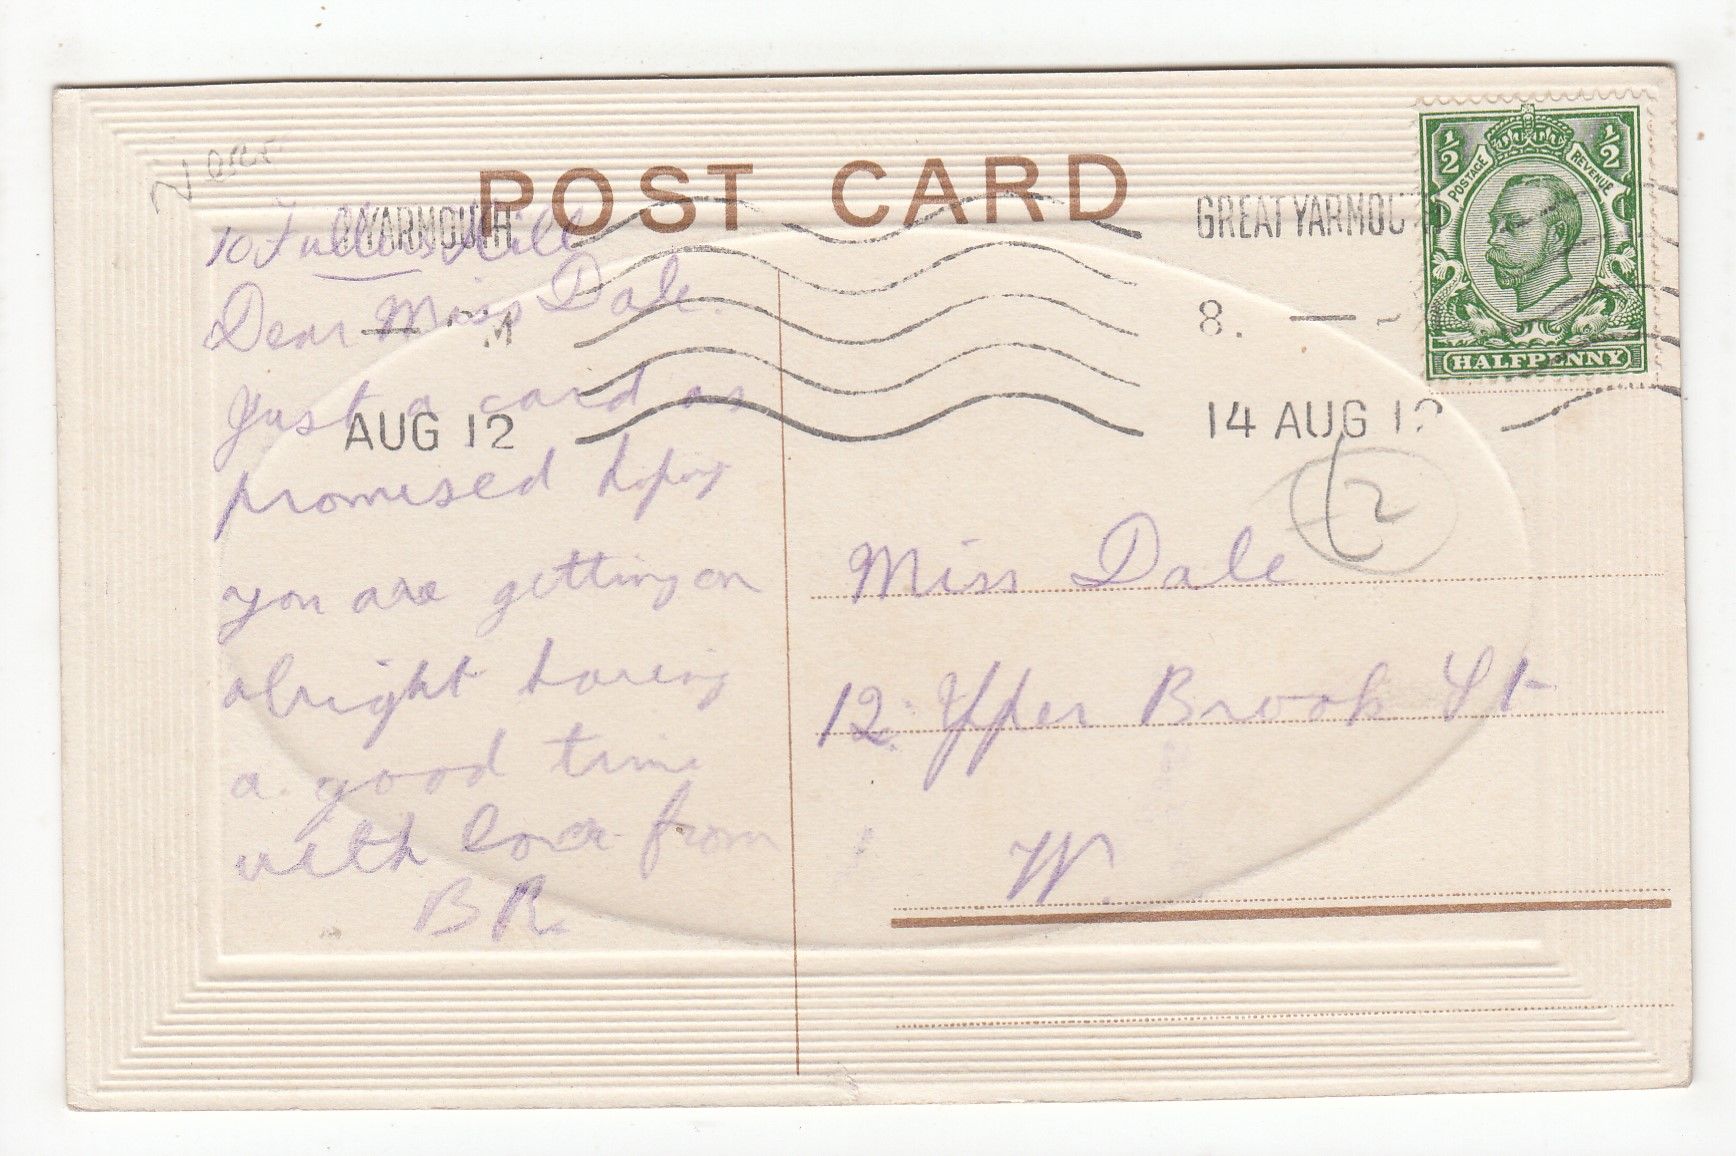 POST CARD
YARMOUTH
GREAT YARMOU
8.
AUG 12
14 AUG 12
½ ½
POSTAGE REVENUE
HALFPENNY
10 Fullers Hill
Dear Miss Dale.
Just a card as
promised hoping
you are getting on
alright having
a good time
with love from
BR.
Miss Dale
12. Upper Brook St
W.
2